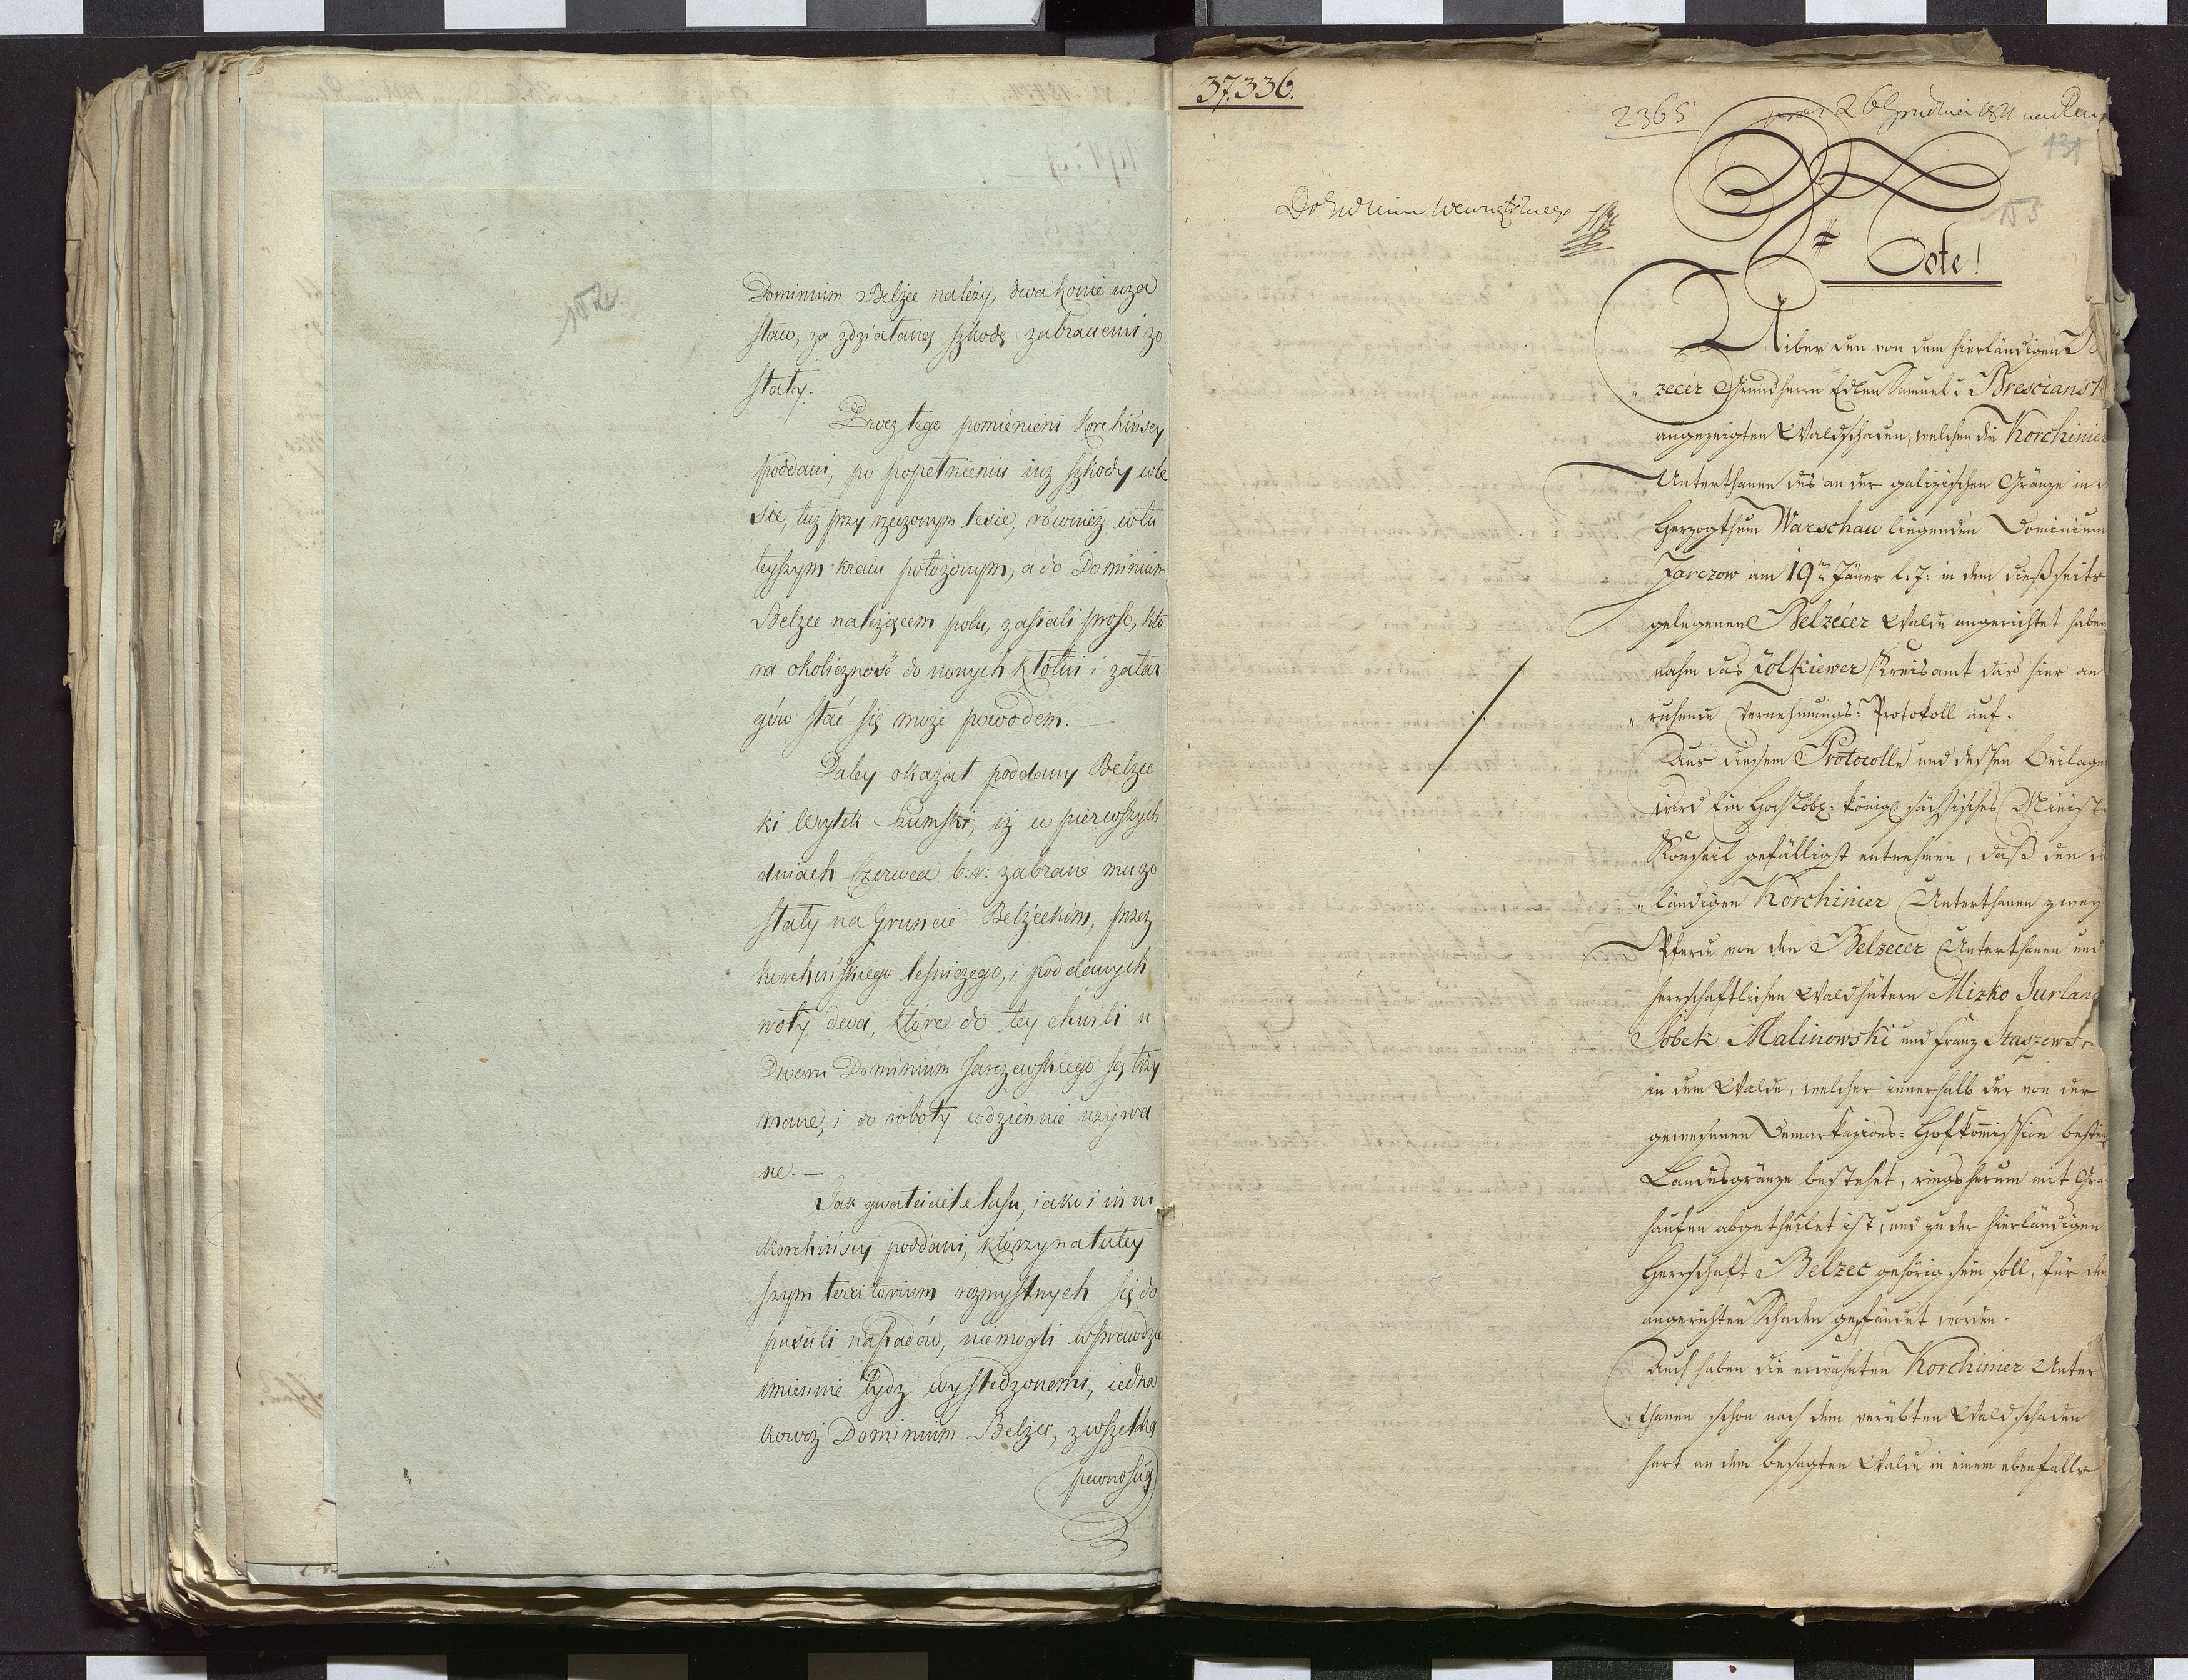 152
Dominium Belzec należy, dwa konie w za
staw, za zdziałaną szkodę zabranemi zo
stały. —
Prócz tego pomienieni Korchińscy
poddani, po popełnieniu iuż szkody w le
sie, tuż przy rzeczonym lesie, również w tu
teyszym kraiu położonym, a do Dominium
Belzec należącem polu, zasiali proso, któ
ra okoliczność do nowych kłótni i zatar
gów stać się może powodem. —
Daley okazał poddany Belzec
ki Woytek Szumski, iż w pierwszych
dniach Czerwca b: r: zabrane mu zo
stały na Gruncie Belżeckim, przez
korchińskiego leśniczego, i poddanych
woły dwa, które do tey chwili u
Dworu Dominium Jarczewskiego są trzy
mane, i do roboty codziennie używa
ne. —
Jak gwałciciele lasu, iako i inni
Korchińscy poddani, którzy na tutey
szym territorium rozmyślnych się do
puścili napadów, niemogli wprawdzie
imiennie bydź wyśledzonemi, iedna
kowoż Dominium Belzec, z wszelką
pewnością
37.336.
2365
26 Grudnia 1811
131
153
Do Wydziału Wewnętrznego
Note!
Uiber den von dem hierländigen
zecer Grundherrn Edlen Samuel v Brescianst
angezeigten Waldschaden, welchen die Korchinier
Unterthanen des an der galizischen Gränze in
Herzogthum Warschau liegenden Dominium
Jarczow am 19ten Jäner l: J: in dem dießseits
gelegenen Belzecer Walde angerichtet haben
nahm das Zolkiewer Kreisamt das hier an
„ruhende Vernehmungs-Protokoll auf.
Aus diesem Protocolle und dessen Beilage
wird Ein Hochlöbl: königl: sächsisches Ministe
Konseil gefälligst entnehmen, daß den d
„ländigen Korchinier Unterthanen zwey
Pferde von den Belzecer Unterthanen und
herrschaftlichen Waldhütern Mizko Jurlan
Sobek Malinowski und Franz Staszews
in dem Walde, welcher innerhalb der von der
gewesenen Demarkazions-Hofkommission bestim
Landesgränze bestehet, ringsherum mit Gra
haufen abgetheilet ist, und zu der hierländigen
Herrschaft Belzec gehörig sein soll, für den
angerichten Schaden gepfändet worden.
Auch haben die erwähnten Korchinier Unter
„thanen schon nach dem verübten Waldschaden
hart an dem besagten Walde in einem ebenfalls